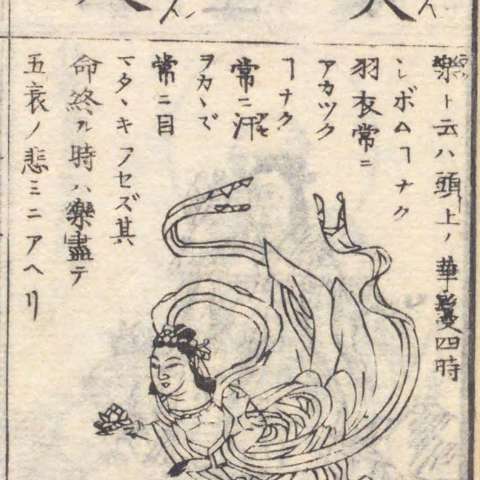 樂ト云ハ頭上ノ華鬘四時
シボムヿナク
羽衣常ニ
アカツク
ヿナク
常ニ汗
ヲカヽズ
常ニ目
マタヽキフセズ其
命終ル時ハ樂盡テ
五衰ノ悲ミニアヘリ